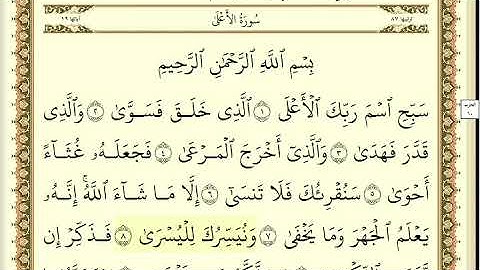 سُورَةُ الأَعْلَىٰ
ترتيبها ٨٧
آياتها ١٩
بِسْمِ ٱللَّهِ ٱلرَّحْمَٰنِ ٱلرَّحِيمِ
سَبِّحِ ٱسْمَ رَبِّكَ ٱلْأَعْلَى ١ ٱلَّذِى خَلَقَ فَسَوَّىٰ ٢ وَٱلَّذِى
قَدَّرَ فَهَدَىٰ ٣ وَٱلَّذِىٓ أَخْرَجَ ٱلْمَرْعَىٰ ٤ فَجَعَلَهُۥ غُثَآءً
أَحْوَىٰ ٥ سَنُقْرِئُكَ فَلَا تَنسَىٰٓ ٦ إِلَّا مَا شَآءَ ٱللَّهُ ۚ إِنَّهُۥ
يَعْلَمُ ٱلْجَهْرَ وَمَا يَخْفَىٰ ٧ وَنُيَسِّرُكَ لِلْيُسْرَىٰ ٨ فَذَكِّرْ إِن